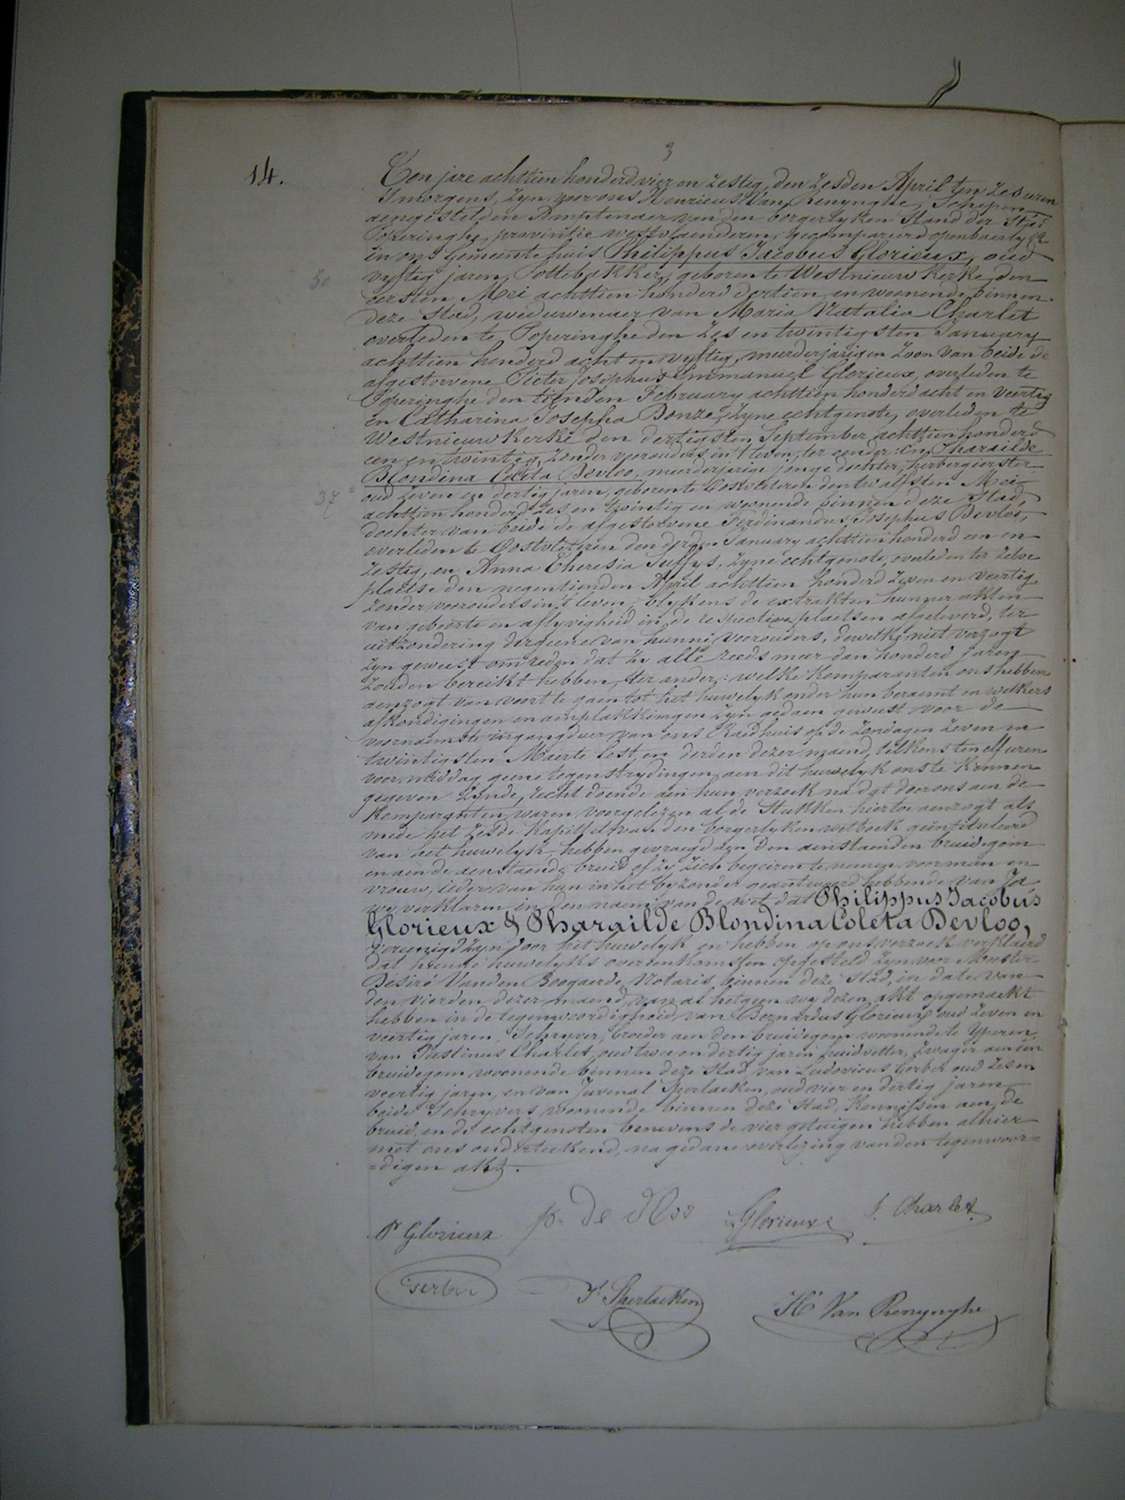 3
14.
Ten jare achttien honderd vier en zestig, den zesden April ten zes uren
'smorgens, zyn voor ons Henricus Van Renynghe, Schepen
aengestelden Amptenaer van den borgerlyken Stand der Stad
Poperinghe, provintie westvlaenderen, gecompareerd openbaerlyk
in ons Gemeentehuis Philippus Jacobus Glorieux, oud
50
vyftig jaren, Pottebakker, geboren te Westnieuwkerke den
eersten Mei achttien honderd dertien, en woonende binnen
deze Stad, weduwenaer van Maria Natalia Charlet
overleden te Poperinghe den zes en twintigsten January
achttien honderd acht en vyftig, meerderjarigen zoon van beide de
afgestorvene Pieter Josephus Emmanuel Glorieux, overleden te
Poperinghe den tienden February achttien honderd acht en veertig
en Catharina Josepha Donze, zyne echtgenote, overleden te
Westnieuwkerke den dertigsten September achttien honderd
een en twintig, zonder voorouders in 't leven, ter eender: en Pharailde
Blondina Coleta Devloo, meerderjarige jonge dochter, herbergierster
37
oud zeven en dertig jaren, geboren te Oostvleteren den twalfsten Mei
achttien honderd zes en twintig en woonende binnen deze Stad,
dochter van beide de afgestorvene Ferdinandus Josephus Devloo,
overleden te Oostvleteren den January achttien honderd een en
zestig, en Anna Theresia zyne echtgenote, overleden ter zelve
plaetse den negentienden April achttien honderd zeven en veertig
zonder voorouders in 't leven; blykens de extrakten hunner akten
van geboorte en aflyvigheid in de respective plaetsen afgeleverd, ter
uitzondering dergene van hunne voorouders, dewelke niet verzogt
zyn geweest om reden dat ze alle reeds meer dan honderd jaren
zouden bereikt hebben, ter ander: welke Komparanten ons hebben
aenzogt van voort te gaen tot het huwelyk onder hun beraemt en welkers
afkondigingen en aenplakkingen zyn gedaen geweest voor de
voornaemste ingangdeur van ons Raedhuis op de zondagen zeven en
twintigsten Maerte lest en derden dezer maend, telkens ten elf uren
voormiddag geene tegenstrydingen aen dit huwelyk ons te kennen
gegeven zynde, recht doende aen hun verzoek na dat door ons aen de
Komparanten waren voorgelezen al de Stukken hiertoe aenzogt als
mede het zesde Kapittel van den borgerlyken wetboek geïntituleerd
van het huwelyk hebben gevraegd aen den aenstaenden bruidegom
en aen de aenstaende bruid of ze zich begeiren te nemen voor man en
vrouw, ieder van hun in het byzonder geantwoord hebbende van Ja
wy verklaren in den naem van de wet dat Philippus Jacobus
Glorieux & Pharailde Blondina Coleta Devloo,
vereenigd zyn door het huwelyk en hebben op ons verzoek verklaerd
dat hunne huwelyks overeenkomsten opgesteld zyn voor Meester
Desiré Vanden Boogaerde Notaris binnen deze Stad, in date van
den vierden dezer maend, van al hetgeen wy dezen akt opgemaekt
hebben in de tegenwoordigheid van Bernardus Glorieux oud zeven en
veertig jaren, Schryver, broeder aen den bruidegom woonende te Yperen,
van Justinus Charlet, oud twee en dertig jaren huidvetter, zwager aen den
bruidegom woonende binnen deze Stad, van Ludovicus Gerber oud zes en
veertig jaren, en van Juvenal Sperlaeken, oud vier en dertig jaren
beide Schryvers woonende binnen deze Stad, Kennissen aen de
bruid, en de echtgenoten benevens de vier getuigen hebben alhier
met ons onderteekend, na gedane overlezing van den tegenwoor-
-digen akt.
P Glorieux
p. de Vloo
Glorieux
J. Charlet
Gerber
J Sperlaeken
H Van Renynghe